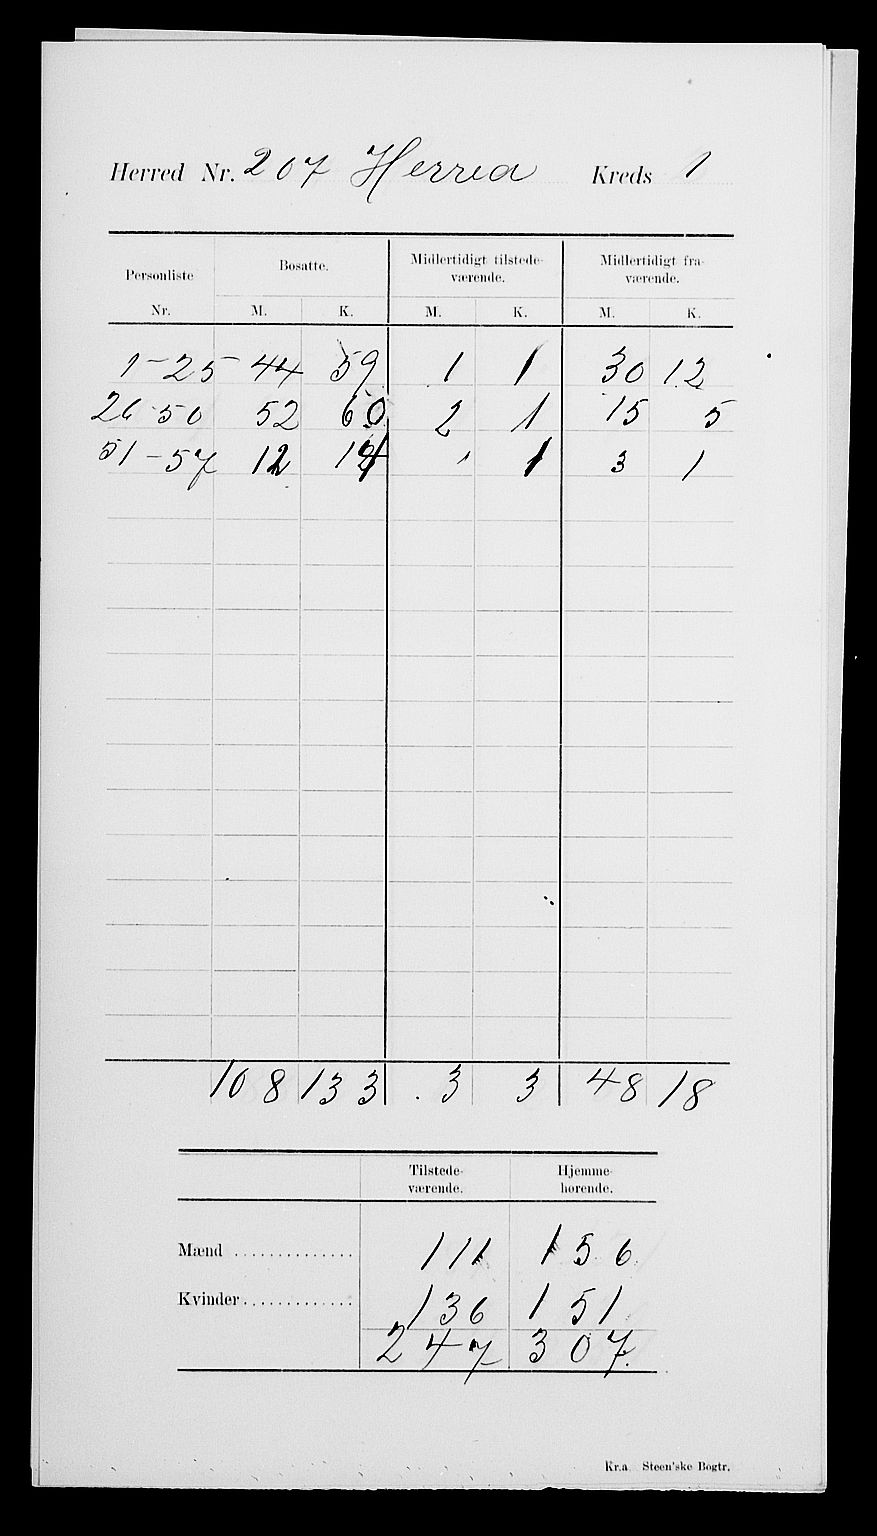 Herred Nr. 207 Herrea Kreds 1
Personliste Bosatte. Midlertidigt tilstede- Midlertidigt fra-
værende. værende.
Nr. M. K. M. K. M. K.
1-25 44 59 1 1 30 12
26-50 52 60 2 1 15 5
51-57 12 14 1 3 1
108 133 3 3 48 18
Tilstede- Hjemme-
værende. hørende.
Mænd .............. 111 156
Kvinder ............. 136 151
247 307
Kr.a Steen'ske Bogtr.